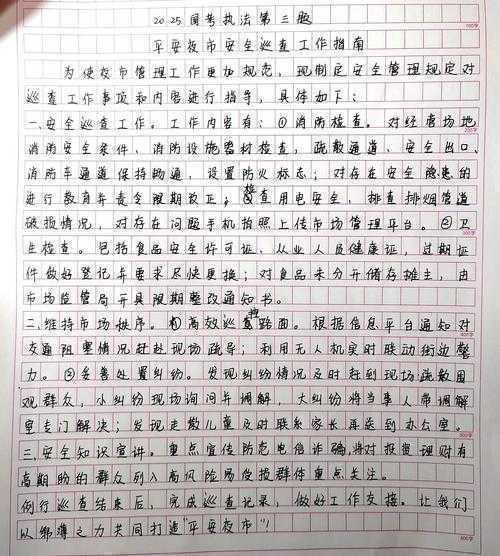 2025国考执法第三题
平安夜市安全巡查工作指南
为使夜市管理工作更加规范，现制定安全管理规定对
巡查工作事项和内容进行指导，具体如下：
一、安全巡查工作。工作内容有：①消防检查。对经营场地
消防安全条件，消防设施器材检查，疏散通道、安全出口、
消防车通道保持畅通，设置防火标志；对存在安全隐患的
进行教育并责令限期改正；检查用电安全，排查排烟管道
破损情况，对存在问题手机拍照上传市场管理平台。②卫
生检查。包括食品安全许可证、从业人员健康证，过期证
件做好登记并要求尽快更换；对食品未分开储存摊主，由
市场监管局开具限期整改通知书。
二、维持市场秩序。①高效巡查路面。根据信息平台通知对
交通阻塞情况赶赴现场疏导；利用无人机实时联动街边警
力。②妥善处置纠纷。发现纠纷情况及时赶到现场疏散围
观群众，小纠纷现场询问并调解，大纠纷将当事人带调解
室专门解决；发现走散儿童及时联系家长再送到办公室。
三、安全知识宣讲。重点宣传防范电信诈骗，将对投资理财有
高期盼的群众列入高风险易受损群体重点关注。
例行巡查结束后，完成巡查记录，做好工作交接。让我们
以绵薄之力共同打造"平安夜市"！
100字
200字
300字
400字
500字
600字